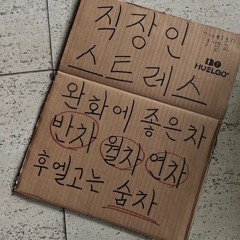 직장인
스트레스
no
HUELGO
완화에 좋은차
반차 월차 연차
후엘고는 숨차